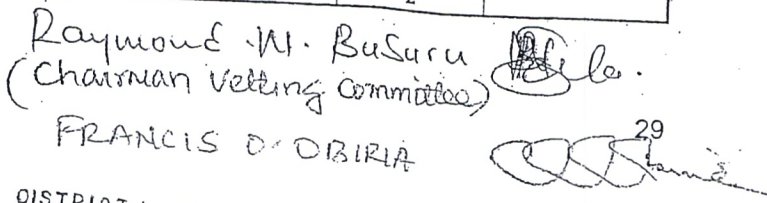 2
Raymond .W. Busuru
(Chairman Vetting Committee)
FRANCIS O. OBIRIA
29
DISTRICT